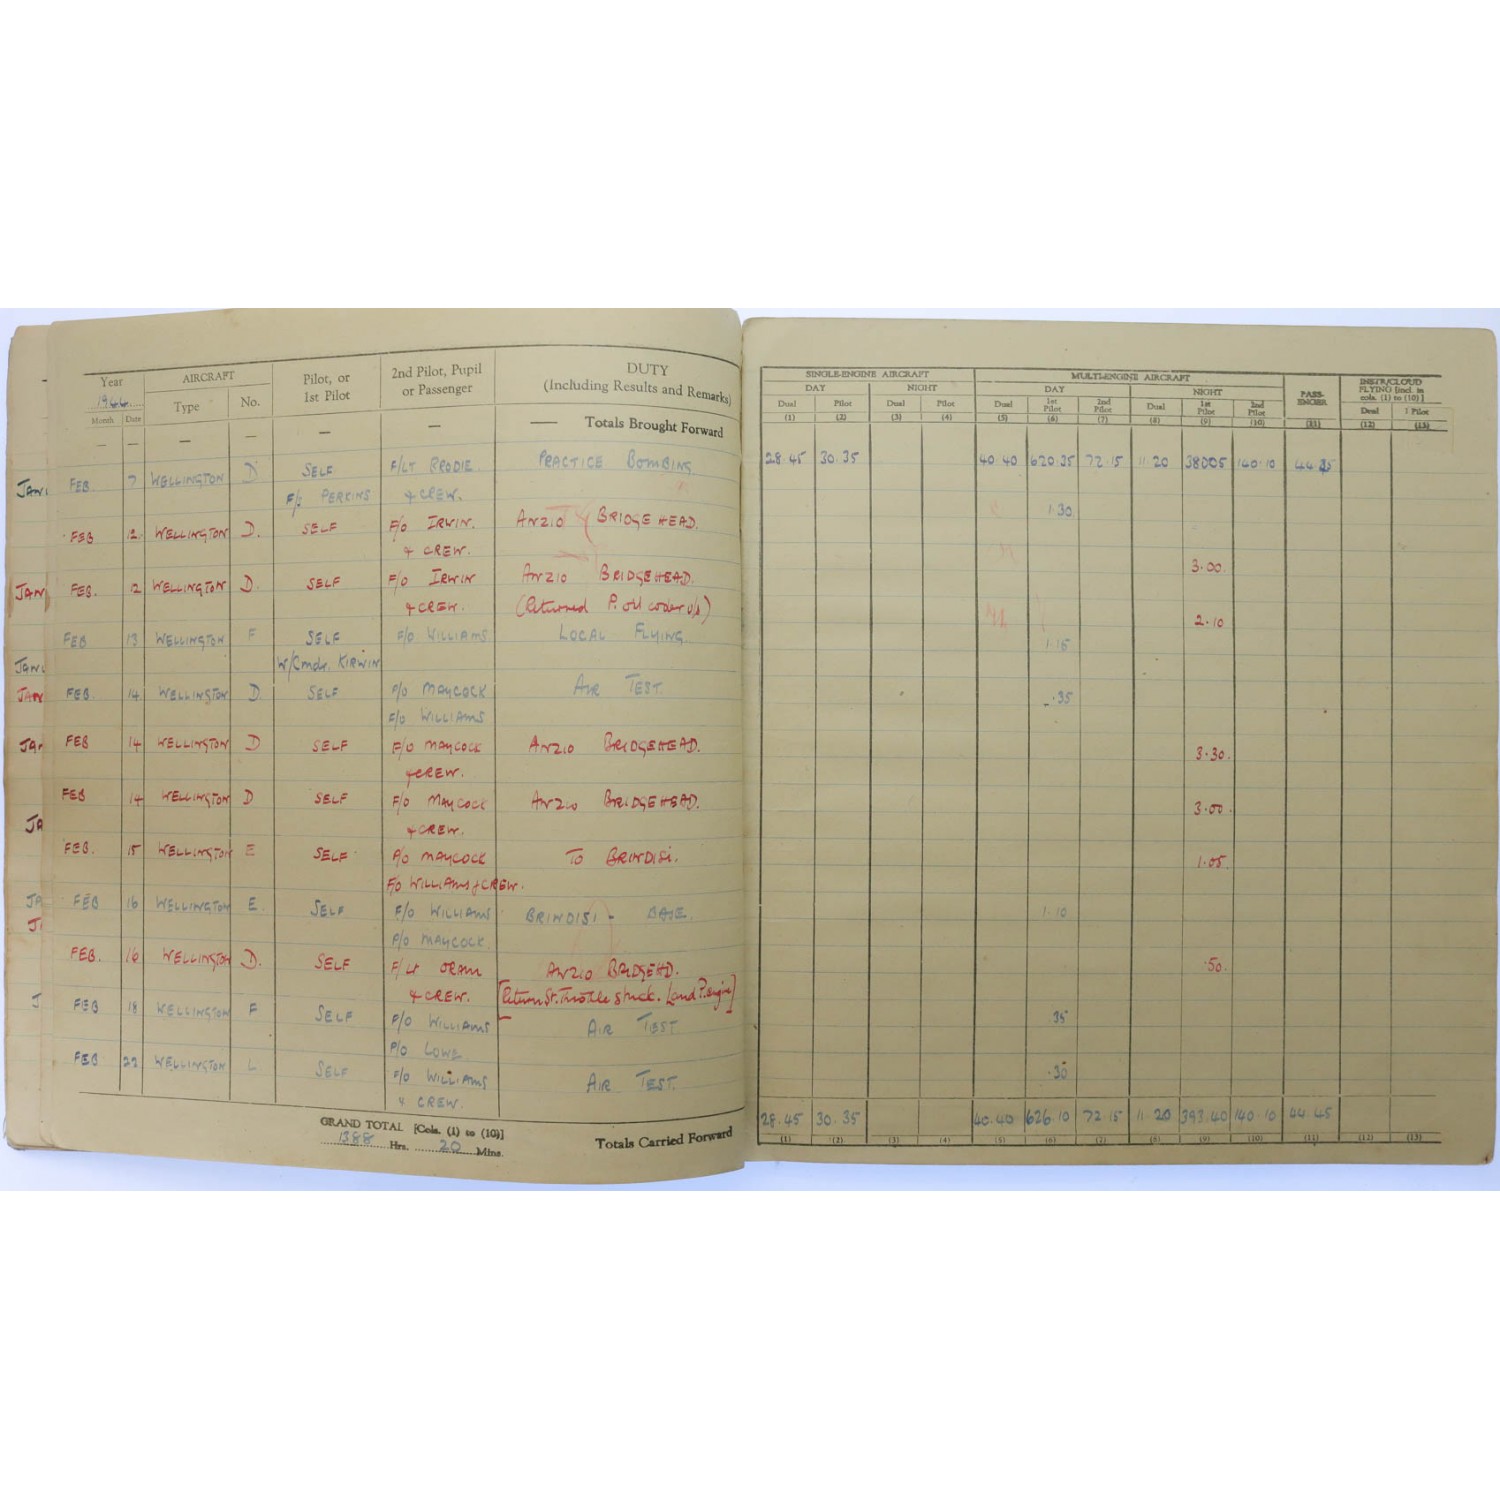 Year
1944
Month Date
AIRCRAFT
Type No.
Pilot, or
1st Pilot
2nd Pilot, Pupil
or Passenger
DUTY
(Including Results and Remarks)
— — — — — — Totals Brought Forward
FEB. 7 WELLINGTON D SELF F/LT BRODIE PRACTICE BOMBING
F/S PERKINS & CREW.
FEB 12 WELLINGTON D. SELF F/O IRWIN. ANZIO BRIDGEHEAD.
& CREW.
FEB. 12 WELLINGTON D. SELF F/O IRWIN ANZIO BRIDGEHEAD.
& CREW. (Returned P. oil cooler u/s)
FEB 13 WELLINGTON F SELF F/O WILLIAMS LOCAL FLYING.
W/Cmdr. KIRWIN
FEB. 14 WELLINGTON D SELF F/O MAYCOCK AIR TEST.
F/O WILLIAMS
FEB 14 WELLINGTON D SELF F/O MAYCOCK ANZIO BRIDGEHEAD.
& CREW.
FEB 14 WELLINGTON D SELF F/O MAYCOCK ANZIO BRIDGEHEAD.
& CREW.
FEB. 15 WELLINGTON E SELF F/O MAYCOCK TO BRINDISI.
F/O WILLIAMS & CREW.
FEB 16 WELLINGTON E. SELF F/O WILLIAMS BRINDISI - BASE.
F/O MAYCOCK
FEB. 16 WELLINGTON D. SELF F/LT ORAM ANZIO BRIDGEHD.
& CREW. [Return St. Throttle stuck. Land P. engine]
FEB 18 WELLINGTON F SELF F/O WILLIAMS AIR TEST
P/O LOWE
FEB 22 WELLINGTON L SELF F/O WILLIAMS AIR TEST.
& CREW.
GRAND TOTAL [Cols. (1) to (10)]
1388 Hrs. 20 Mins.
Totals Carried Forward
JAN
JAN
JAN
JAN
JAN
JA
JA
J
J
SINGLE-ENGINE AIRCRAFT MULTI-ENGINE AIRCRAFT PASS-ENGER INSTR/CLOUD FLYING [Incl. in cols. (1) to (10)]
DAY NIGHT DAY NIGHT
Dual Pilot Dual Pilot Dual 1st Pilot 2nd Pilot Dual 1st Pilot 2nd Pilot Dual Pilot
(1) (2) (3) (4) (5) (6) (7) (8) (9) (10) (11) (12) (13)
28.45 30.35 40.40 620.35 72.15 11.20 38005 140.10 44.45
1.30
3.00.
2.10
1.15
.35
3.30.
3.00.
1.05
1.10
.50.
35
.30
28.45 30.35 40.40 626.10 72.15 11.20 393.40 140.10 44.45
(1) (2) (3) (4) (5) (6) (7) (8) (9) (10) (11) (12) (13)